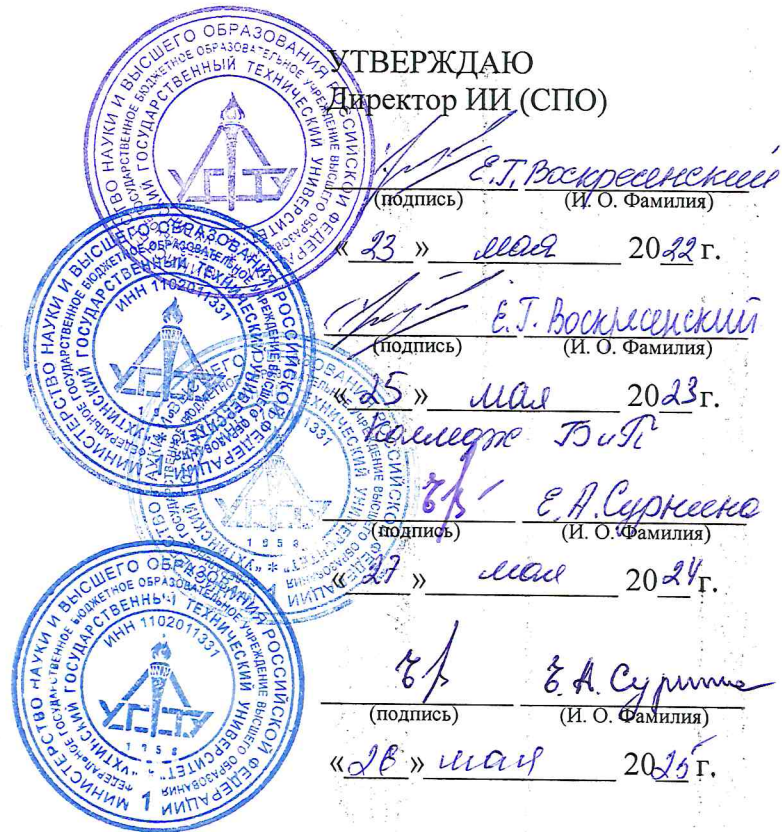 УТВЕРЖДАЮ
Директор ИИ (СПО)
Е.Г. Воскресенский
(подпись) (И. О. Фамилия)
« 23 » мая 2022 г.
Е.Г. Воскресенский
(подпись) (И. О. Фамилия)
« 25 » мая 2023 г.
Колледж БиП
Е.А. Сурнина
(подпись) (И. О. Фамилия)
« 27 » мая 2024 г.
Е.А. Сурнина
(подпись) (И. О. Фамилия)
« 26 » мая 2025 г.
МИНИСТЕРСТВО НАУКИ И ВЫСШЕГО ОБРАЗОВАНИЯ РОССИЙСКОЙ ФЕДЕРАЦИИ
ФЕДЕРАЛЬНОЕ ГОСУДАРСТВЕННОЕ БЮДЖЕТНОЕ ОБРАЗОВАТЕЛЬНОЕ УЧРЕЖДЕНИЕ ВЫСШЕГО ОБРАЗОВАНИЯ
"УХТИНСКИЙ ГОСУДАРСТВЕННЫЙ ТЕХНИЧЕСКИЙ УНИВЕРСИТЕТ"
ИНН 1102011331
УГТУ
1958
1